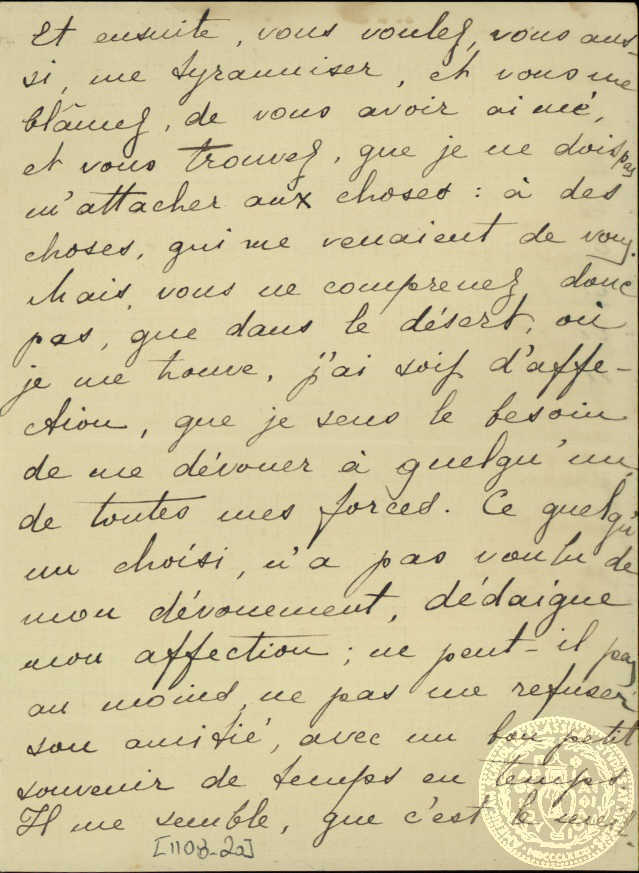 Et ensuite, vous voulez, vous aus-
si, me tyranniser, et vous me
blâmez, de vous avoir aimé,
et vous trouvez, que je ne dois pas
m'attacher aux choses : à des
choses, qui me venaient de vous.
Mais, vous ne comprenez donc
pas, que dans le désert, où
je me trouve, j'ai soif d'affe-
ction, que je sens le besoin
de me dévouer à quelqu'un,
de toutes mes forces. Ce quelqu'
un choisi, n'a pas voulu de
mon dévouement, dédaigne
mon affection ; ne peut-il pas
au moins, ne pas me refuser
son amitié, avec un bon petit
souvenir de temps en temps.
Il me semble, que c'est le
[1108-2a]